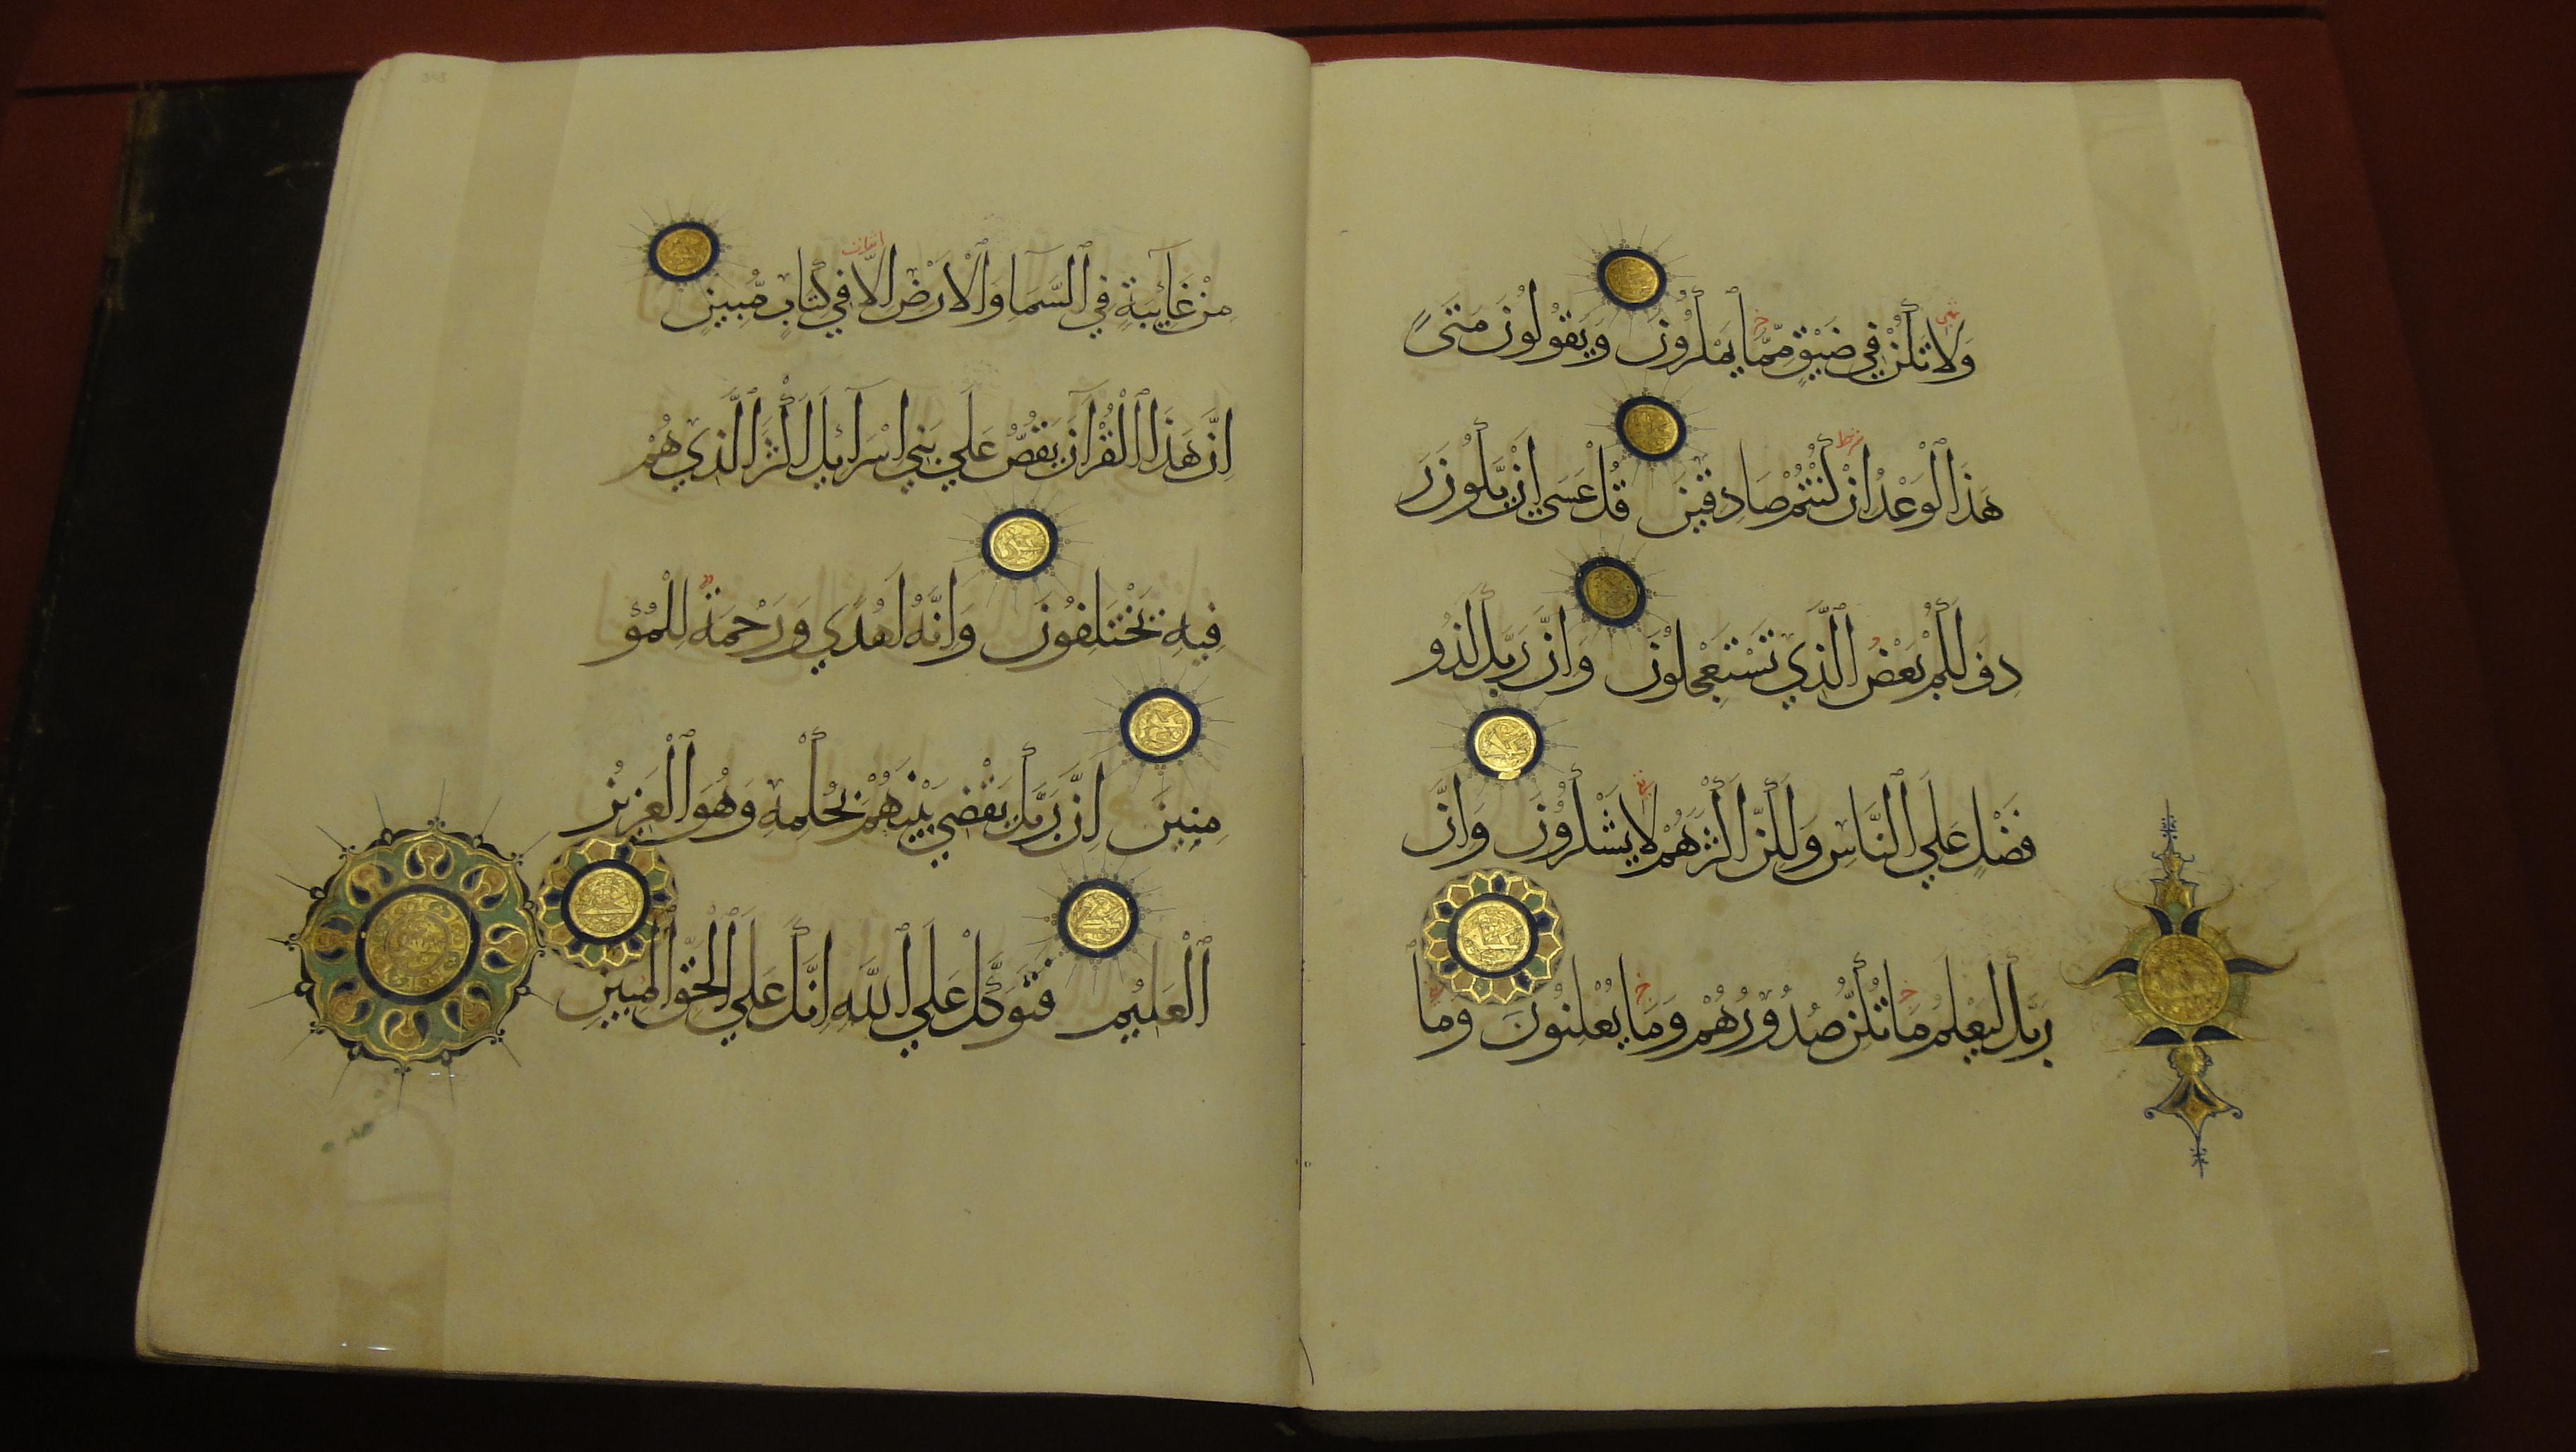 وَلَا تَكُنْ فِي ضَيْقٍ مِمَّا يَمْكُرُونَ وَيَقُولُونَ مَتَى
هَذَا الْوَعْدُ إِنْ كُنْتُمْ صَادِقِينَ قُلْ عَسَى أَنْ يَكُونَ رَ
دِفَ لَكُمْ بَعْضُ الَّذِي تَسْتَعْجِلُونَ وَإِنَّ رَبَّكَ لَذُو
فَضْلٍ عَلَى النَّاسِ وَلَكِنَّ أَكْثَرَهُمْ لَا يَشْكُرُونَ وَإِنَّ
رَبَّكَ لَيَعْلَمُ مَا تُكِنُّ صُدُورُهُمْ وَمَا يُعْلِنُونَ وَمَا
مِنْ غَائِبَةٍ فِي السَّمَا وَالْأَرْضِ إِلَّا فِي كِتَابٍ مُبِينٍ
إِنَّ هَذَا الْقُرْآنَ يَقُصُّ عَلَى بَنِي إِسْرَائِيلَ أَكْثَرَ الَّذِي هُمْ
فِيهِ يَخْتَلِفُونَ وَإِنَّهُ لَهُدًى وَرَحْمَةٌ لِلْمُؤْ
مِنِينَ إِنَّ رَبَّكَ يَقْضِي بَيْنَهُمْ بِحُكْمِهِ وَهُوَ الْعَزِيزُ
الْعَلِيمُ فَتَوَكَّلْ عَلَى اللَّهِ إِنَّكَ عَلَى الْحَقِّ الْمُبِينِ